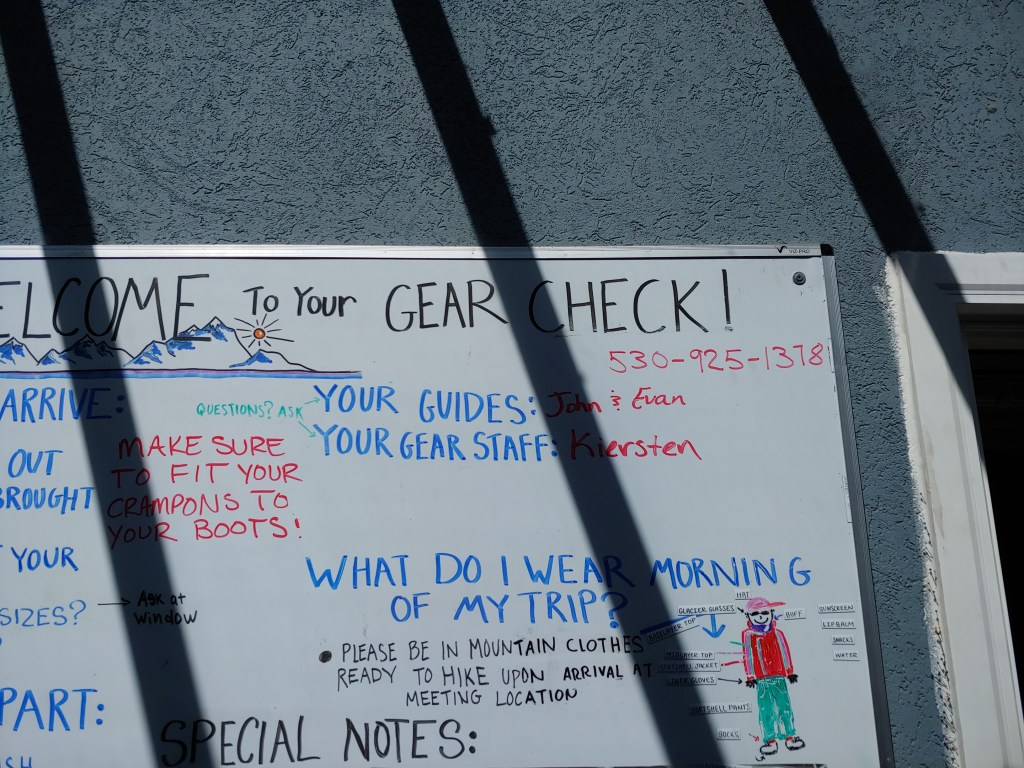 ELCOME TO YOUR GEAR CHECK!
530-925-1378
ARRIVE:
QUESTIONS? ASK
YOUR GUIDES: John & Evan
YOUR GEAR STAFF: Kiersten
OUT
BROUGHT
MAKE SURE
TO FIT YOUR
CRAMPONS TO
YOUR BOOTS!
YOUR
SIZES?
Ask at
window
WHAT DO I WEAR MORNING
OF MY TRIP?
• PLEASE BE IN MOUNTAIN CLOTHES
READY TO HIKE UPON ARRIVAL AT
MEETING LOCATION
HAT
GLACIER GLASSES
BUFF
BASELAYER TOP
MIDLAYER TOP
SOFTSHELL JACKET
LINER GLOVES
SOFTSHELL PANTS
SOCKS
SUNSCREEN
LIP BALM
SNACKS
WATER
PART:
SPECIAL NOTES:
SH